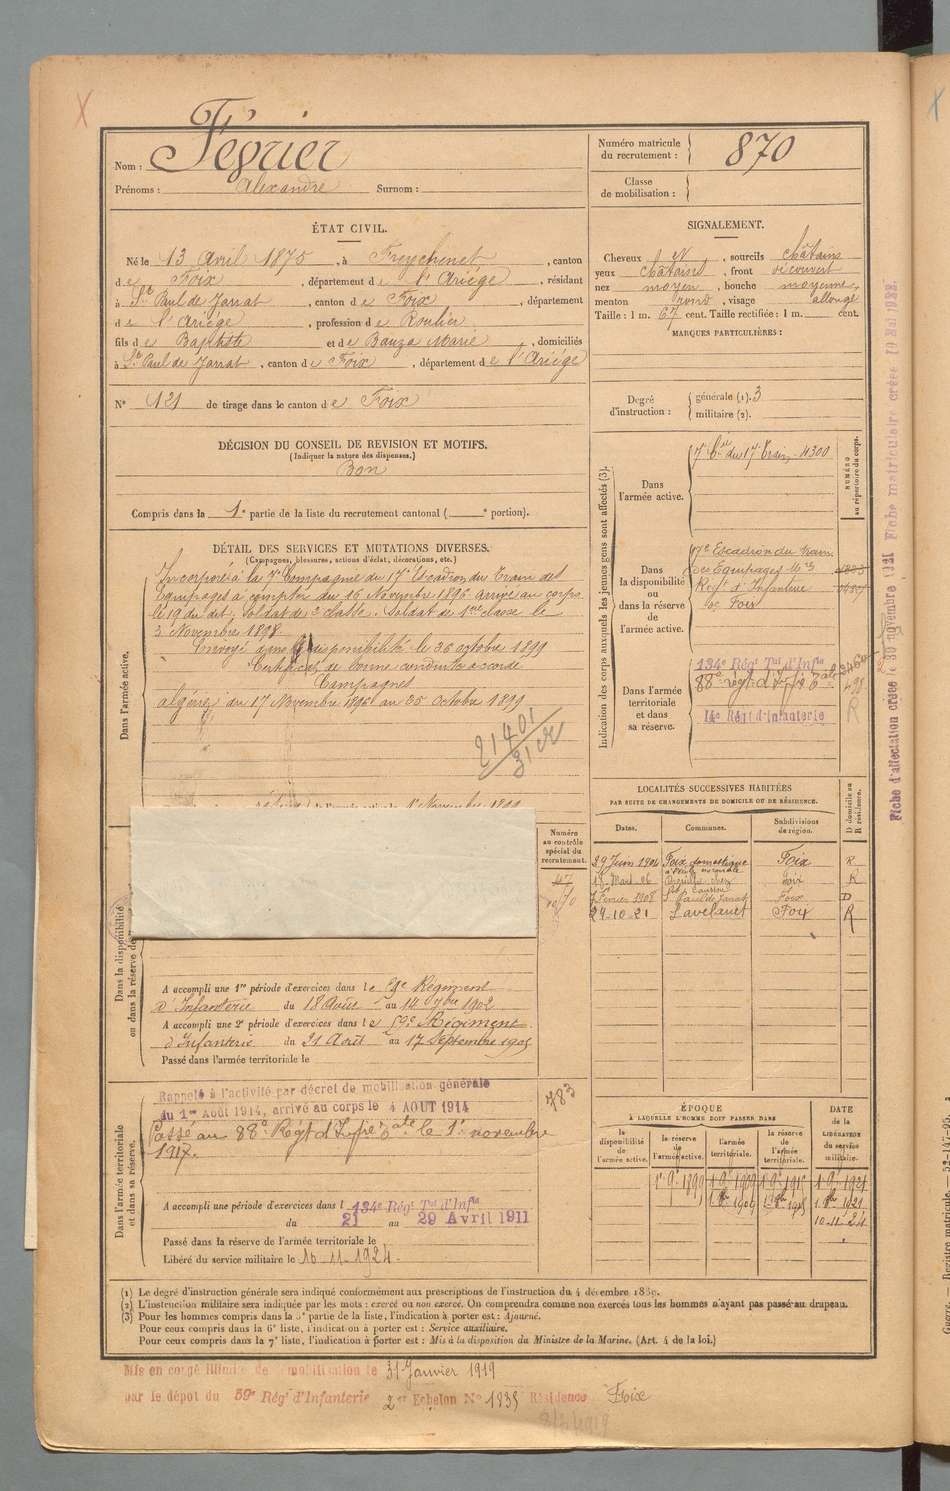 Février
Nom :
Prénoms : Alexandre Surnom :
Numéro matricule du recrutement : 870
Classe de mobilisation :
ÉTAT CIVIL.
Né le 13 Avril 1875, à Freychenet, canton
de Foix, département de l'Ariége, résidant
à St Paul de Jarrat, canton de Foix, département
de l'Ariége, profession de Roulier
fils de Baptiste et de Bauza Marie, domiciliés
à St Paul de Jarrat, canton de Foix, département de l'Ariége
N° 121 de tirage dans le canton de Foix
DÉCISION DU CONSEIL DE REVISION ET MOTIFS.
(Indiquer la nature des dispenses.)
Bon
Compris dans la 1e partie de la liste du recrutement cantonal ( e portion).
SIGNALEMENT.
Cheveux et, sourcils châtains
yeux châtains, front découvert
nez moyen, bouche moyenne,
menton rond, visage allongé
Taille : 1 m. 67 cent. Taille rectifiée : 1 m. cent.
MARQUES PARTICULIÈRES :
Degré d'instruction : générale (1). 3
militaire (2).
DÉTAIL DES SERVICES ET MUTATIONS DIVERSES.
(Campagnes, blessures, actions d'éclat, décorations, etc.)
Dans l'armée active.
Incorporé à la 7e Compagnie du 17e Escadron du Train des
Equipages à compter du 16 Novembre 1896 arrivé au corps
le 19 du dit, soldat de 2e classe. Soldat de 1re classe le
3 Novembre 1898.
Envoyé dans la disponibilité le 26 octobre 1899
Certificat de bonne conduite accordé
Campagnes
Algérie du 17 Novembre 1896 au 25 Octobre 1899
21401
1er Novembre 1899
Numéro au contrôle spécial du recrutement.
Dans la disponibilité ou dans la réserve de
A accompli une 1re période d'exercices dans le Régiment
d'Infanterie du 18 Août au 14 7bre 1902
A accompli une 2e période d'exercices dans le 59e Régiment
d'Infanterie du 21 Août au 17 Septembre 1905
Passé dans l'armée territoriale le
Dans l'armée territoriale et dans sa réserve.
Rappelé à l'activité par décret de mobilisation générale
du 1er Août 1914, arrivé au corps le 4 AOUT 1914
Passé au 88e Régt d'Infie le 1er novembre
1917.
783
A accompli une période d'exercices dans l 134e Régt Tal d'Infie
du 21 au 29 Avril 1911
Passé dans la réserve de l'armée territoriale le
Libéré du service militaire le 10-11-1924.
Indication des corps auxquels les jeunes gens sont affectés (3).
NUMÉRO au répertoire du corps.
Dans l'armée active.
7e Cie du 17e Train 4300
Dans la disponibilité ou dans la réserve de l'armée active.
17e Escadron du train
des Equipages
Régt d'Infanterie
de Foix
Dans l'armée territoriale et dans sa réserve.
134e Régt Tal d'Infie
88e régt d'Infie
14e Régt d'Infanterie
R
LOCALITÉS SUCCESSIVES HABITÉES
PAR SUITE DE CHANGEMENTS DE DOMICILE OU DE RÉSIDENCE.
Dates. Communes. Subdivisions de région. D domicile ou R résidence.
29 Juin 1904 Foix domestique à l'école normale Foix R
Foix R
Février 1908 St Paul de Jarrat Foix D
29-10-21 Lavelanet Foix R
ÉPOQUE
À LAQUELLE L'HOMME DOIT PASSER DANS
la disponibilité de l'armée active. la réserve de l'armée active. l'armée territoriale. la réserve de l'armée territoriale.
DATE de la LIBÉRATION du service militaire.
1er 9e 1899 1er 9e 1909 1er 9e 1915 1er 9e 1921
10-11-24
Fiche d'affectation créée le 30 novembre 1921 Fiche matriculaire créée 10 Mai 1922.
(1) Le degré d'instruction générale sera indiqué conformément aux prescriptions de l'instruction du 4 décembre 1889.
(2) L'instruction militaire sera indiquée par les mots : exercé ou non exercé. On comprendra comme non exercés tous les hommes n'ayant pas passé au drapeau.
(3) Pour les hommes compris dans la 5e partie de la liste, l'indication à porter est : Ajourné.
Pour ceux compris dans la 6e liste, l'indication à porter est : Service auxiliaire.
Pour ceux compris dans la 7e liste, l'indication à porter est : Mis à la disposition du Ministre de la Marine. (Art. 4 de la loi.)
Mis en congé illimité de démobilisation le 31 Janvier 1919
par le dépot du 59e Régt d'Infanterie 2e Echelon N° 1835 Résidence Foix